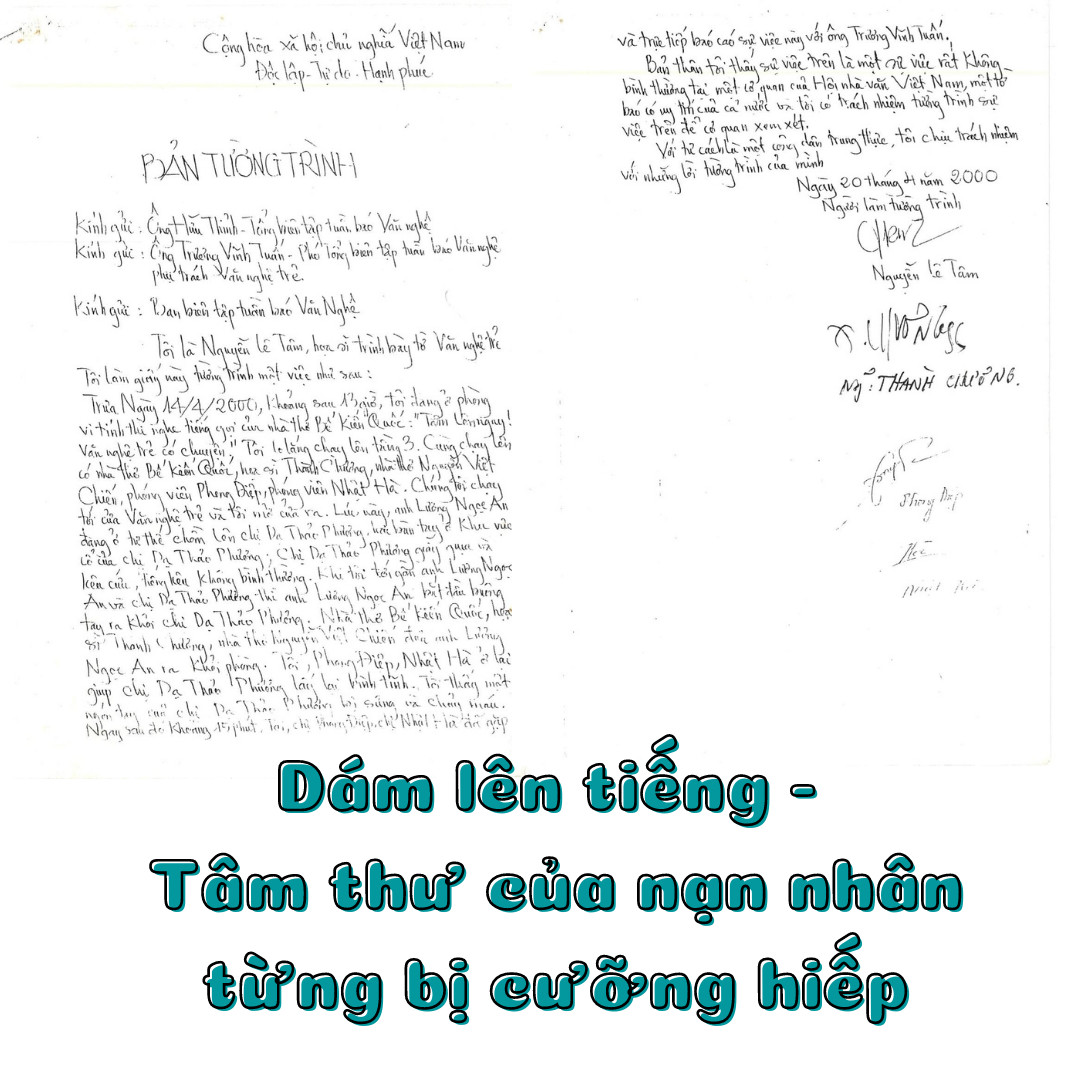 Cộng hòa xã hội chủ nghĩa Việt Nam
Độc lập - Tự do - Hạnh phúc
BẢN TƯỜNG TRÌNH
Kính gửi : Ông Hữu Thỉnh - Tổng biên tập tuần báo Văn nghệ
Kính gửi : Ông Trương Vĩnh Tuấn - Phó Tổng biên tập tuần báo Văn nghệ
phụ trách Văn nghệ trẻ
Kính gửi : Ban biên tập tuần báo Văn Nghệ
Tôi là Nguyễn Lê Tâm, họa sĩ trình bày tờ Văn nghệ trẻ
Tôi làm giấy này tường trình một việc như sau :
Trưa Ngày 14/4/2000, khoảng sau 13 giờ, tôi đang ở phòng
vi tính thì nghe tiếng gọi của nhà thơ Bế Kiến Quốc: "Tâm lên ngay!
Văn nghệ trẻ có chuyện!" Tôi lo lắng chạy lên tầng 3. Cùng chạy lên
có nhà thơ Bế Kiến Quốc, họa sĩ Thành Chương, nhà thơ Nguyễn Việt
Chiến, phóng viên Phong Điệp, phóng viên Nhật Hà. Chúng tôi chạy
tới cửa Văn nghệ trẻ và tôi mở cửa ra. Lúc này, anh Lương Ngọc An
đang ở tư thế chồm lên chị Dạ Thảo Phương, hai bàn tay ở khu vực
cổ của chị Dạ Thảo Phương; Chị Dạ Thảo Phương giãy giụa và
kêu cứu, tiếng kêu không bình thường. Khi tôi tới gần anh Lương Ngọc
An và chị Dạ Thảo Phương thì anh Lương Ngọc An bắt đầu buông
tay ra khỏi chị Dạ Thảo Phương. Nhà thơ Bế Kiến Quốc, họa
sĩ Thành Chương, nhà thơ Nguyễn Việt Chiến đưa anh Lương
Ngọc An ra khỏi phòng. Tôi, Phong Điệp, Nhật Hà ở lại
giúp chị Dạ Thảo Phương lấy lại bình tĩnh. Tôi thấy một
ngón tay của chị Dạ Thảo Phương bị sưng và chảy máu.
Ngay sau đó khoảng 15 phút, Tôi, chị Phong Điệp, chị Nhật Hà đã gặp
và trực tiếp báo cáo sự việc này với ông Trương Vĩnh Tuấn.
Bản thân tôi thấy sự việc trên là một sự việc rất không
bình thường tại một cơ quan của Hội nhà văn Việt Nam, một tờ
báo có uy tín của cả nước và tôi có trách nhiệm tường trình sự
việc trên để cơ quan xem xét.
Với tư cách là một công dân trung thực, tôi chịu trách nhiệm
với những lời tường trình của mình
Ngày 20 tháng 4 năm 2000
Người làm tường trình
Nguyễn Lê Tâm
THÀNH CHƯƠNG.
Phong Điệp
Dám lên tiếng -
Tâm thư của nạn nhân
từng bị cưỡng hiếp